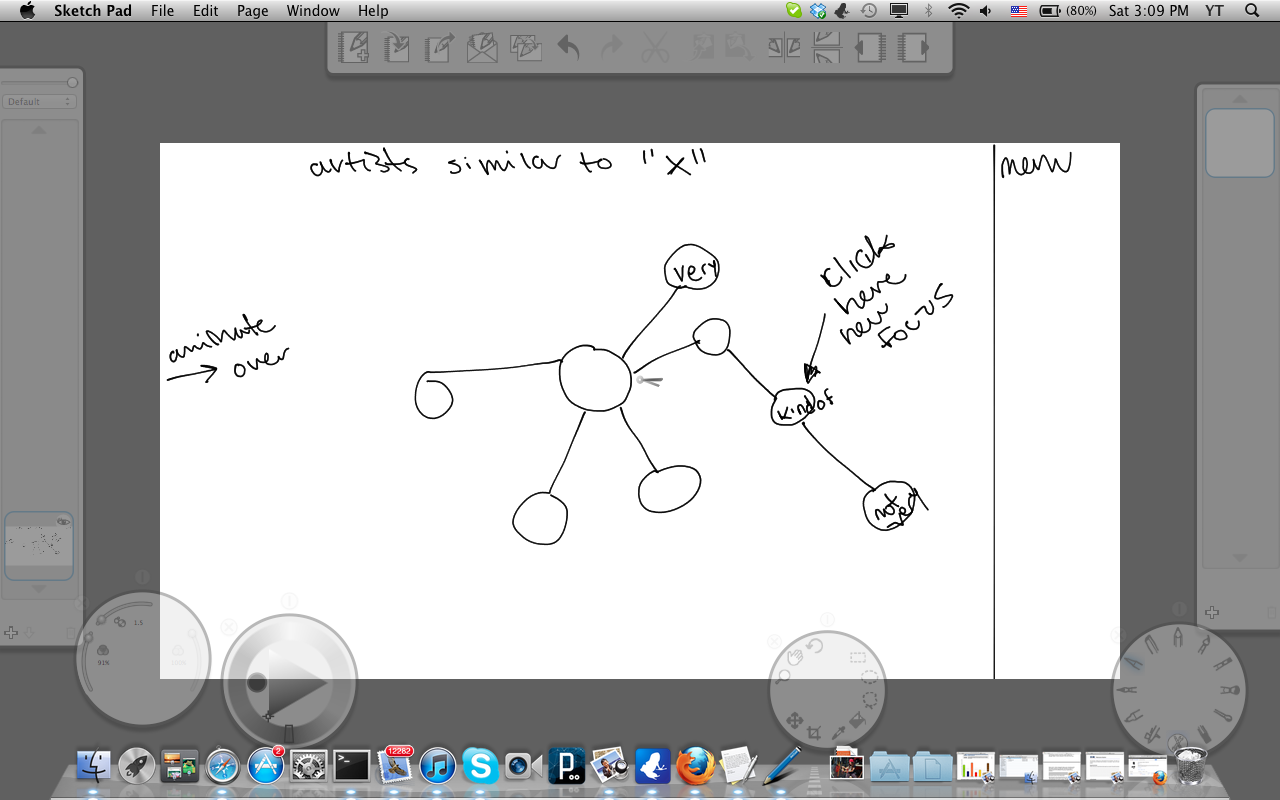 Sketch Pad File Edit Page Window Help (80%) Sat 3:09 PM YT
Default
artists similar to "X"
new
very
click
here
new
focus
animate
over
kind of
not
very
1.5
91%
100%
2
12282